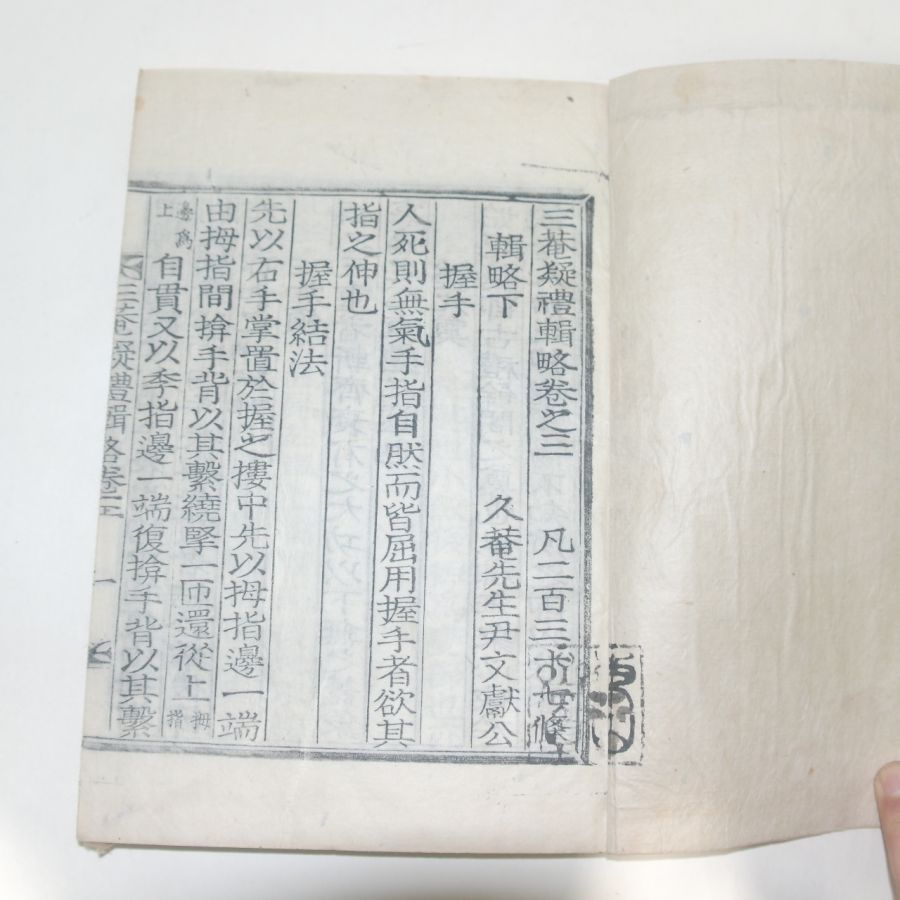 三菴疑禮輯略卷之三 凡二百三十七條
輯略下 久菴先生尹文獻公
握手
人死則無氣手指自然而皆屈用握手者欲其
指之伸也
握手結法
先以右手掌置於握之摟中先以拇指邊一端
由拇指間揜手背以其繫繞掔一匝還從上拇指
邊爲上自貫又以季指邊一端復揜手背以其繫
三菴疑禮輯略卷三 一